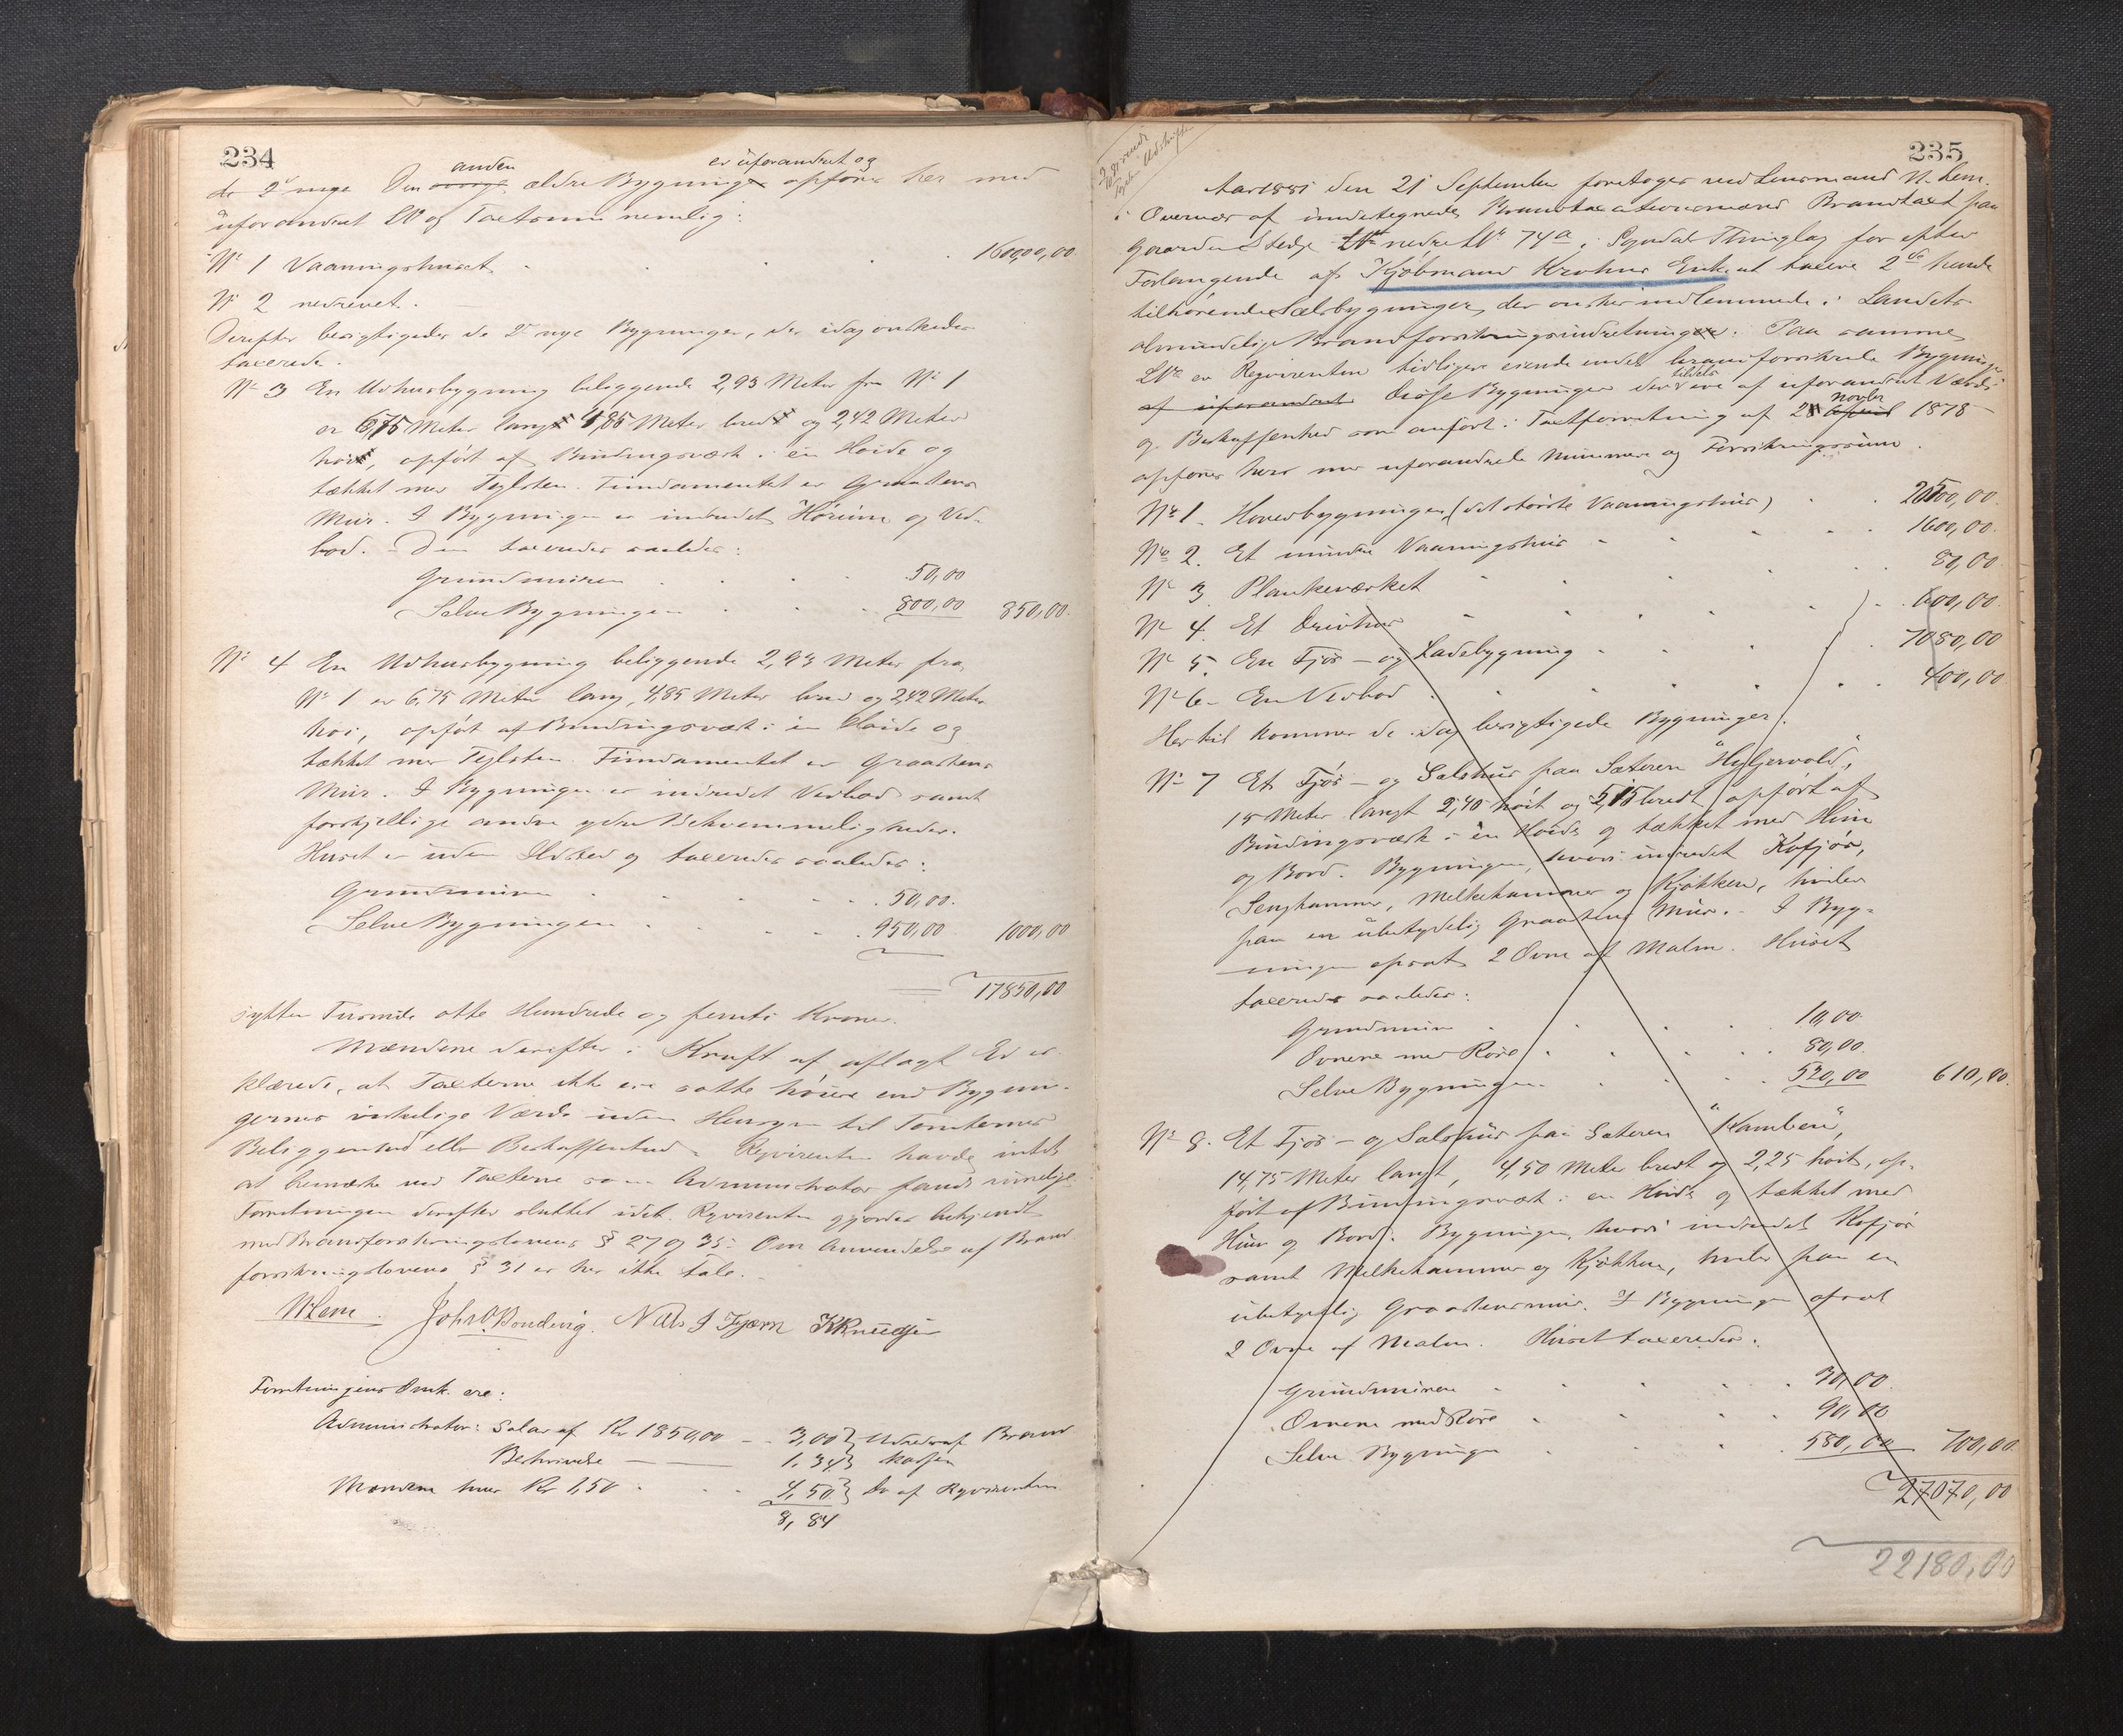 234
anden er uforandret og
de 2de nye Den ældre Bygning opføres her med
uforandret LN og Taxtsum nemlig:
No 1 Vaaningshuset 16000,00
No 2 nedrevet.
Derefter besigtigedes de 2de nye Bygninger, der idag ønskedes
taxerede.
No 3 En Udhusbygning beliggende 2,93 Meter fra No 1
er 6,75 Meter lang 4,85 Meter bred og 2,42 Meter
høi, opført af Bindingsværk i en Høide og
tækket med Teglsten. Fundamentet er Graastens
Mur. I Bygningen er indredet Hørum og Ved-
bod. Den taxeredes saaledes:
Grundmuren 50,00
Selve Bygningen 800,00 850,00.
No 4 En Udhusbygning beliggende 2,93 Meter fra
No 1 er 6,75 Meter lang, 4,85 Meter bred og 2,42 Meter
høi, opført af Bindingsværk i en Høide og
tækket med Teglsten. Fundamentet er Graastens
Mur. I Bygningen er indredet Vedbod samt
forskjellige andre ydre Bekvemmeligheder.
Huset er uden Ildsted og taxeredes saaledes:
Grundmuren 50,00.
Selve Bygningen 950,00 1000,00
17850,00
sytten Tusinde otte Hundrede og femti Kroner.
Mændene derefter i Kraft af aflagt Ed er-
klærede, at Taxterne ikke ere satte høiere end Bygnin-
gernes virkelige Værdi uden Hensyn til Tomternes
Beliggenhed eller Beskaffenhed. Rekvirenten havde intet
at bemærke ved Taxterne som Administrator fandt rimelige.
Forretningen derefter sluttet idet Rekvirenten gjordes bekjendt
med Brandforsikringslovens § 27 og 35. Om Anvendelse af Brand-
forsikringslovens § 31 er her ikke Tale.
NLem. Johs O. Bondevig. Nils J Fjærn KKnudsen
Forretningens Omk. ere:
Administrator: Salær af Kr 1850,00 – 3,00 } Udredes af Brand
Beskrivelse — 1.34 } Kassen
Mændene hver Kr 1,50 4,50 } Do af Rekvirenten
8,84
235
Aar 1881 den 21 September foretoges ved Lensmand N. Lem
i Overvær af undertegnede Brandtaxationsmænd Brandtaxt paa
Gaarden Stedje nedre LNr 74a i Sogndal Thinglag for efter
Forlangende af Kjøbmand Krohns Enke at taxere 2de hende
tilhørende Sælsbygninger, der ønskes indlemmede i Landets
almindelige Brandforsikringsindretning. Paa samme
LNo er Rekvirenten tidligere eiende endel brandforsikrede Bygninger
af uforandret Disse Bygninger der tildels ere af uforandret Værdi
og Beskaffenhed som anført i Taxtforretning af 28 Novbr 1878
opføres her med uforandrede Numere og Forsikringssum.
No 1. Hovedbygningen (det største Vaaningshus)
No 2. Et mindre Vaaningshus 1600,00.
No 3 Plankeværket 80,00
No 4. Et Drivhus 600,00
No 5. En Fjøs- og Ladebygning 7080,00
No 6. En Vedbod 400,00
Hertil kommer de idag besigtigede Bygninger:
No 7 Et Fjøs- og Selshus paa Sæteren "Hyljervold",
15 Meter langt 2,40 høit og 5,15 bredt opført af
Bindingsværk i en Høide og tækket med Him
og Bord. Bygningen, hvori indredet Kofjøs,
Sengkammer, Melkekammer og Kjøkken, hviler
paa en ubetydelig Graastens Mur. I Byg-
ningen opsat 2 Ovne af Malm. Huset
taxeredes saaledes:
Grundmuren 10,00
Ovnene med Rør 80,00.
Selve Bygningen 520,00 610,00.
No 8. Et Fjøs- og Selshus paa Sæteren "Kamben",
14,75 Meter langt, 4,50 Meter bredt og 2,25 høit, op-
ført af Bindingsværk i en Høide og tækket med
Him og Bord. Bygningen, hvori indredet Kofjøs
samt Melkekammer og Kjøkken, hviler paa en
ubetydelig Graastensmur. I Bygningen opsat
2 Ovne af Malm. Huset taxeredes:
Grundmuren 30,00
Ovnene med Rør 90,00
Selve Bygningen 580,00 700,00
27070,00
22180,00